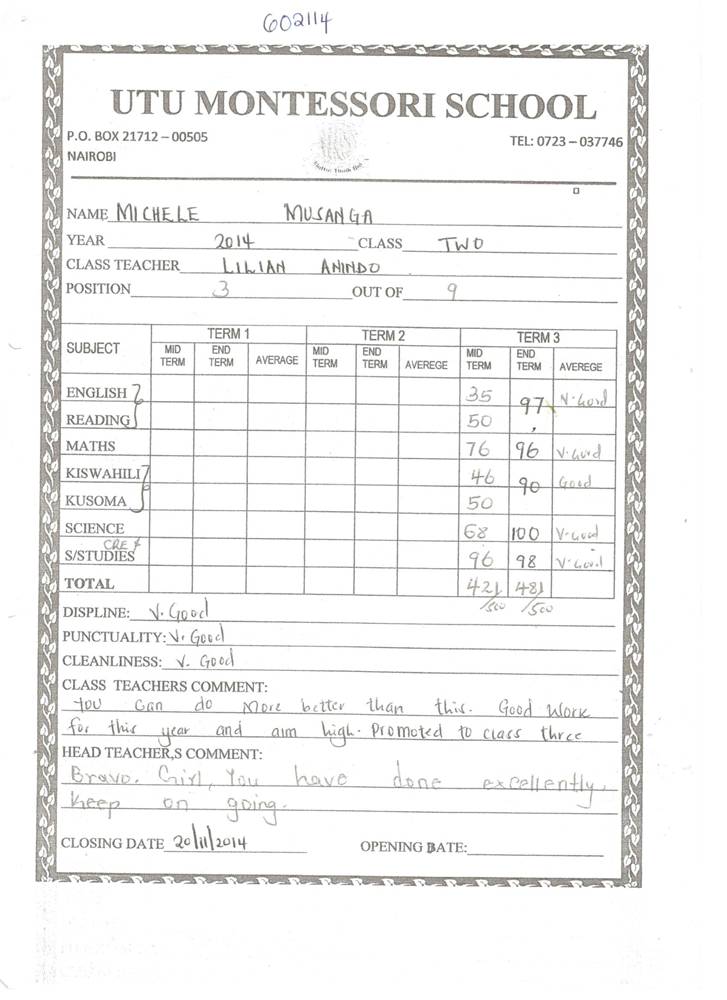 602114
UTU MONTESSORI SCHOOL
P.O. BOX 21712 – 00505
TEL: 0723 – 037746
NAIROBI
NAME MICHELE MUSANGA
YEAR 2014 CLASS TWO
CLASS TEACHER LILIAN ANINDO
POSITION 3 OUT OF 9
SUBJECT TERM 1 TERM 2 TERM 3
MID TERM END TERM AVERAGE MID TERM END TERM AVEREGE MID TERM END TERM AVEREGE
ENGLISH 35 97 V. Good
READING 50
MATHS 76 96 V. Good
KISWAHILI 46 90 Good
KUSOMA 50
SCIENCE 68 100 V. Good
CRE &
S/STUDIES 96 98 V. Good
TOTAL 421/500 481/500
DISPLINE: V. Good
PUNCTUALITY: V. Good
CLEANLINESS: V. Good
CLASS TEACHERS COMMENT:
You can do more better than this. Good work
for this year and aim high. Promoted to class three
HEAD TEACHER,S COMMENT:
Bravo. Girl, You have done excellently,
keep on going.
CLOSING DATE 20/11/2014 OPENING DATE: